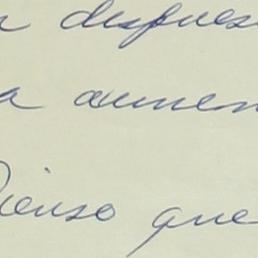 n despues
a aumen
Pienso que